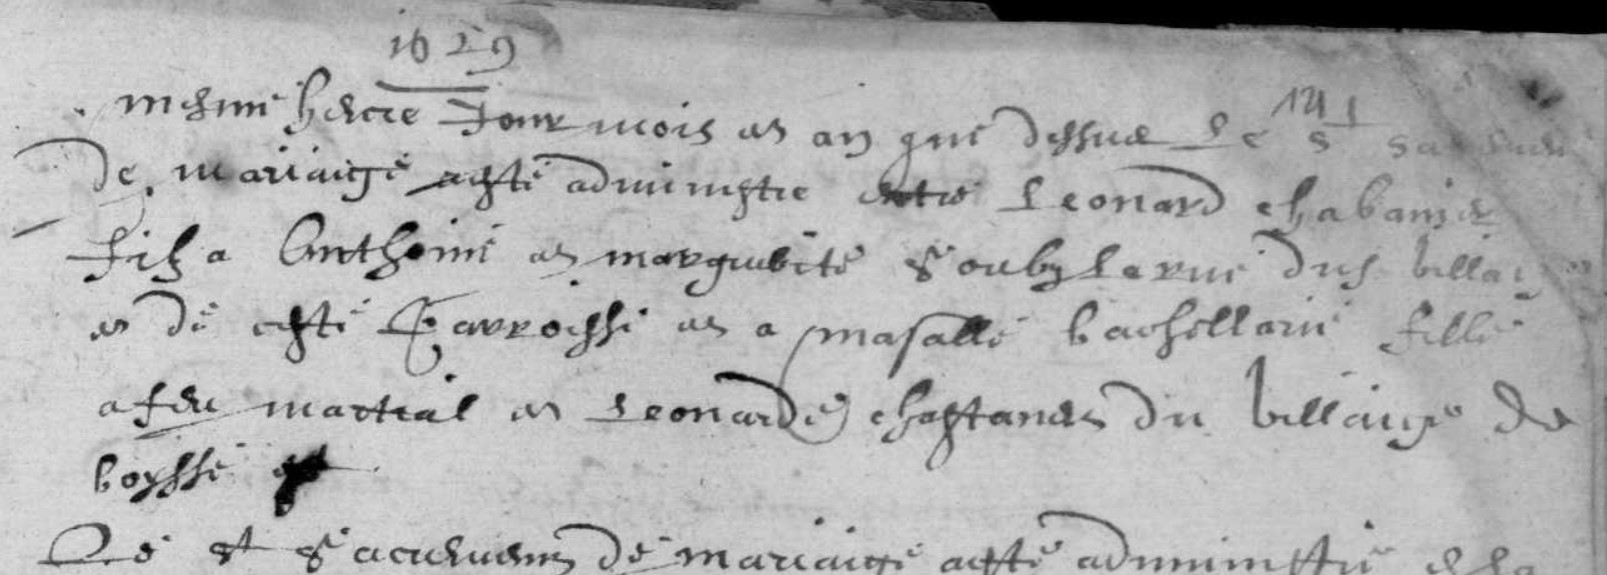 1629
mesme heure Jour mois et an que dessus Le St sacrement
De mariaige a este administre entre Leonard chabanier
filz a Anthoine et marguerite Soubzlarue dud village
et de ceste parroisse et a masalle bachellarie fille
a feu martial et Leonarde chastanet du village de
boysse
Le St Sacrement De mariaige a este administre